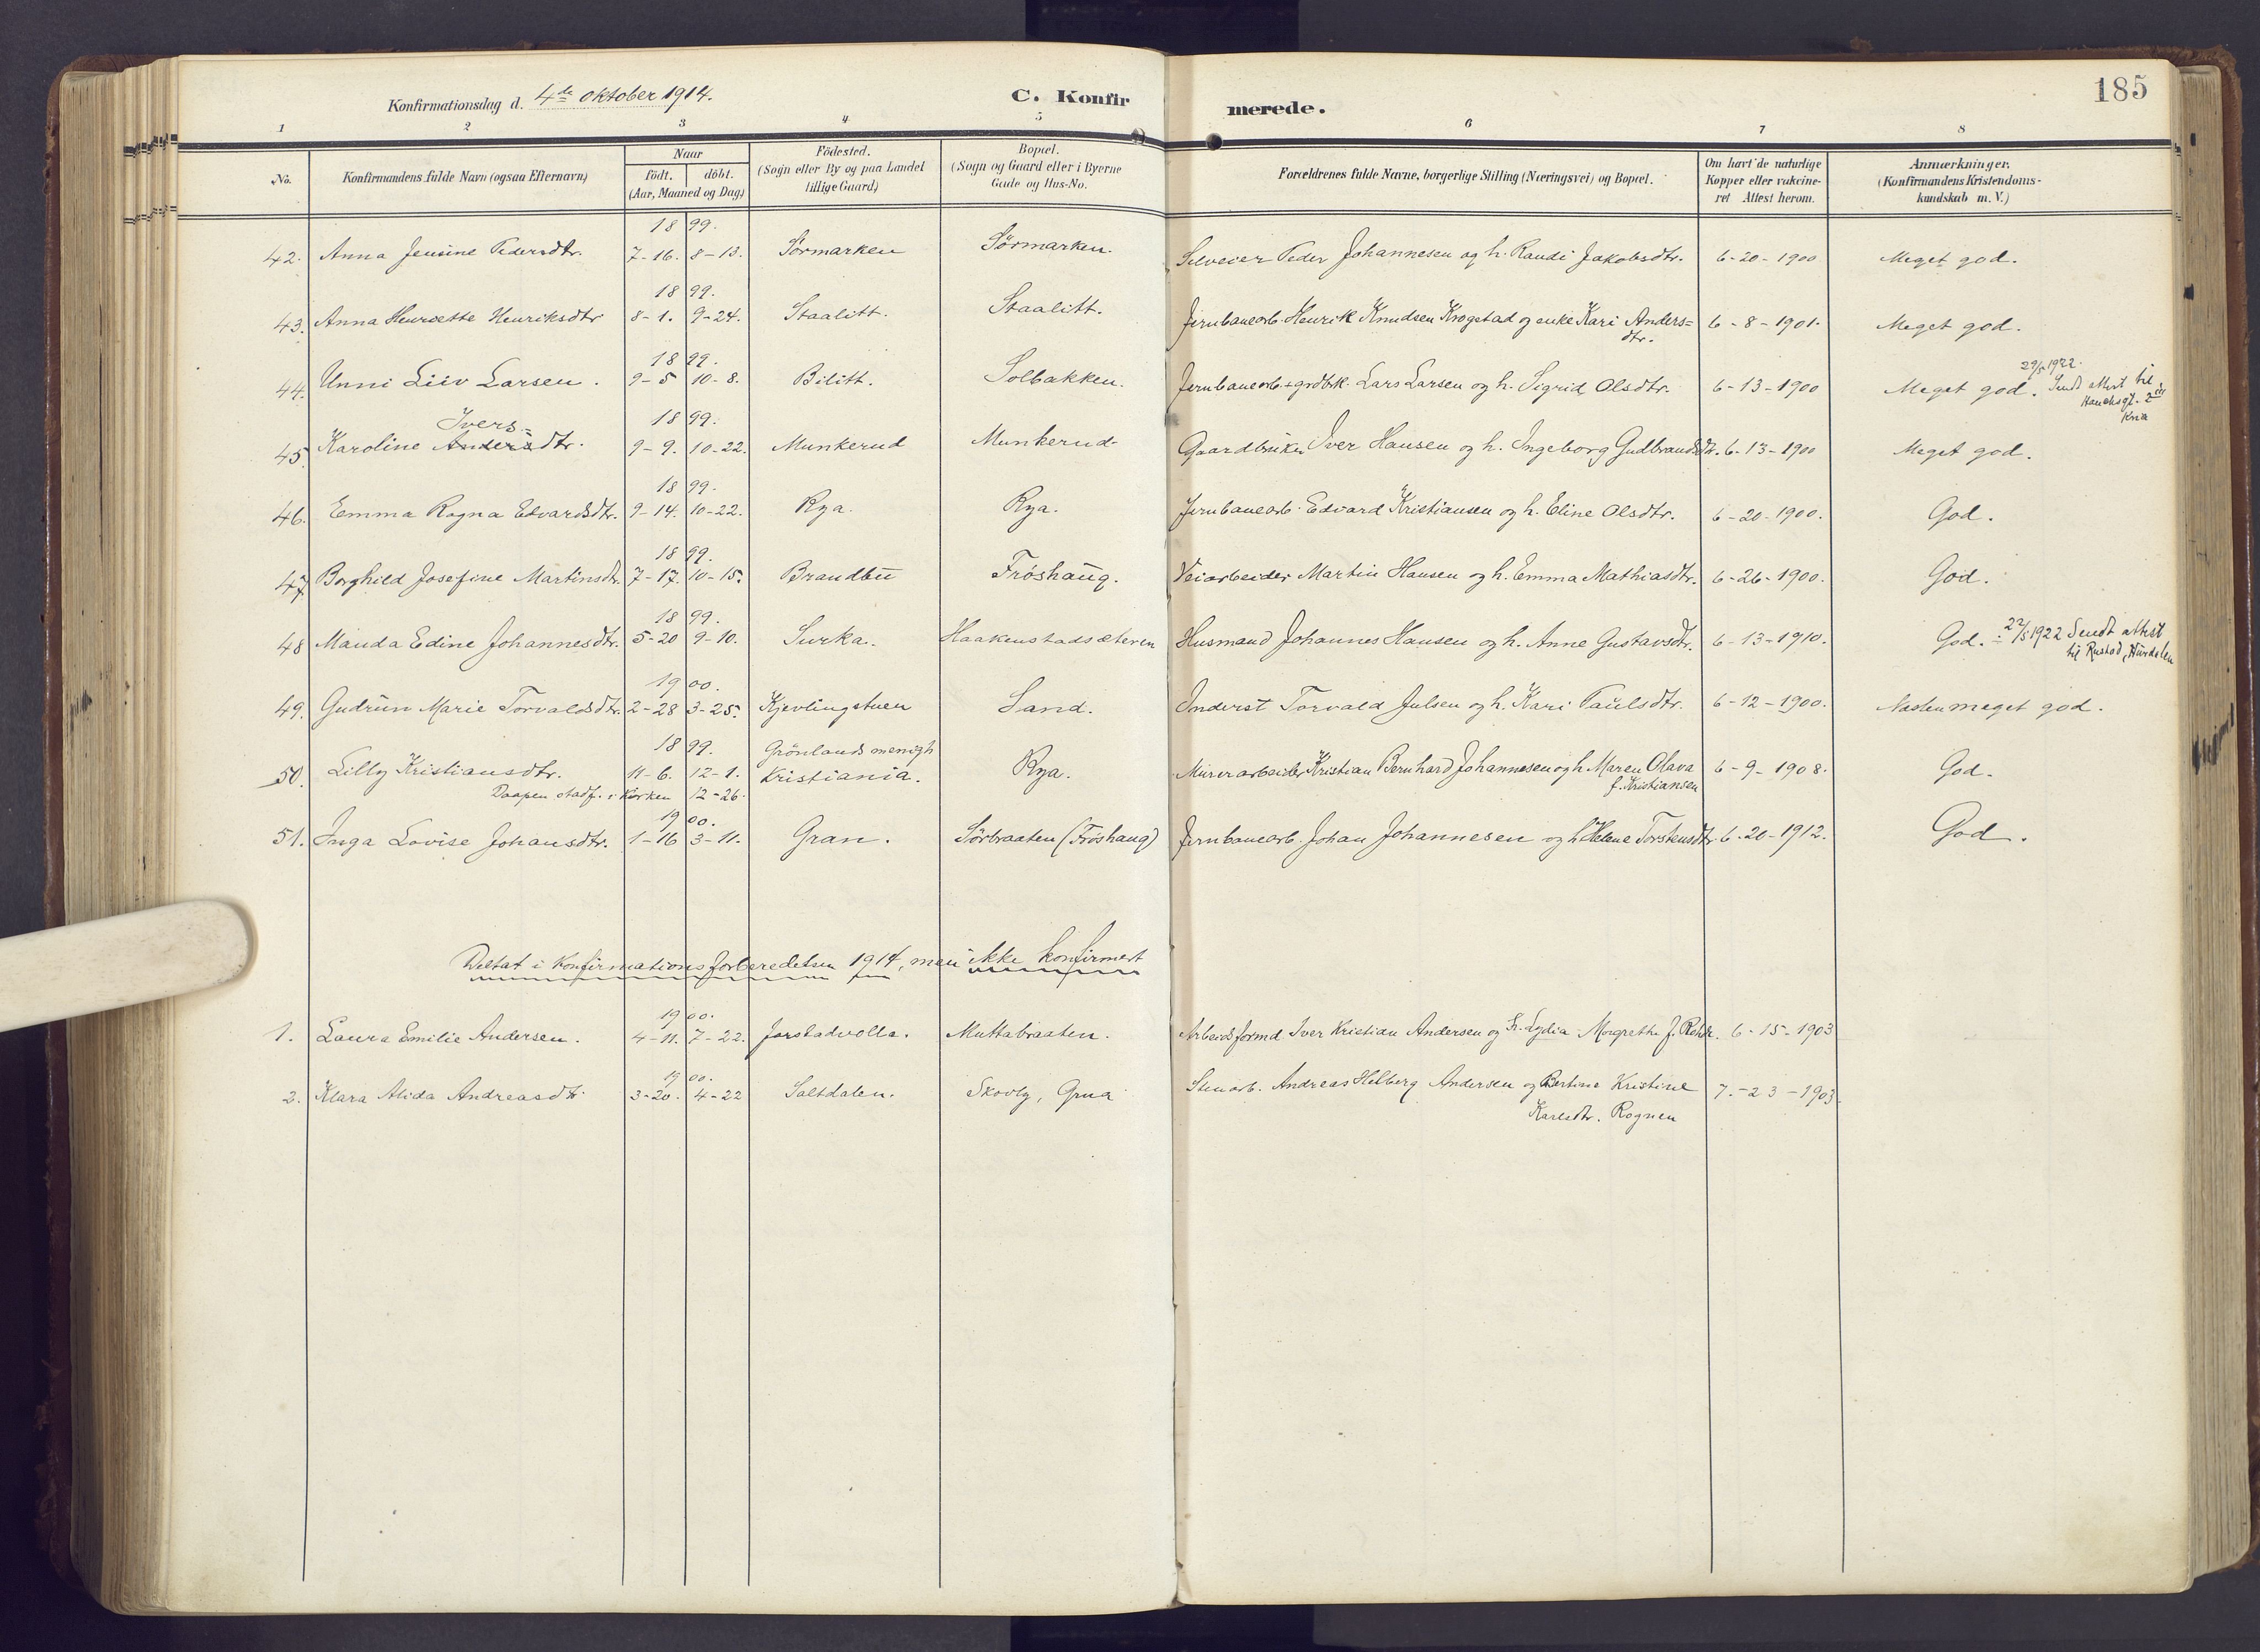 185
Konfirmationsdag d. 4de Oktober 1914. C. Konfir merede.
1 2 3 4 5 6 7 8
No. Konfirmandens fulde Navn (ogsaa Efternavn) Naar födt. döbt. (Aar, Maaned og Dag) Födested. (Sogn eller By og paa Landet tillige Gaard) Bopæl. (Sogn og Gaard eller i Byerne Gade og Hus-No. Forældrenes fulde Navne, borgerlige Stilling (Næringsvei) og Bopæl. Om havt de naturlige Kopper eller vakcineret Attest herom. Anmærkninger. (Konfirmandens Kristendomskundskab m. V.)
1899.
42. Anna Jensine Pedersdtr. 7-16. 8-13. Sörmarken Sörmarken. Selveier Peder Johannesen og h. Randi Jakobsdtr. 6-20-1900 Meget god.
1899.
43. Anna Henriette Henriksdtr 8-1. 9-24. Staalitt. Staalitt. Jernbanearb. Henrik Knudsen Krogstad og enke Kari Anders=
dtr. 6-8-1901. Meget god.
1899.
44. Unni Liiv Larsen. 9-5 10-8. Bilitt. Solbakken. Jernbanearb. + grdbrk. Lars Larsen og h. Sigrid Olsdtr. 6-13-1900 Meget god. 29/5 1922.
Sendt attest til
Kria
Ivers= 1899.
45. Karoline Andersdtr. 9-9. 10-22. Munkerud Munkerud Gaardbruker Iver Hansen og h. Ingeborg Gudbrandsdtr. 6-13-1900 Meget god.
1899.
46. Emma Ragna Edvardsdtr. 9-14. 10-22. Rya. Rya. Jernbanearb. Edvard Kristiansen og h. Eline Olsdtr. 6-20-1900. God.
1899.
47. Borghild Josefine Martinsdtr. 7-17. 10-15. Brandbu Fröshaug. Veiarbeider Martin Hansen og h. Emma Mathiasdtr. 6-26-1900. God.
1899.
48 Manda Edine Johannesdtr. 5-20 9-10. Surka. Haakenstadsæteren Husmand Johannes Hansen og h. Anne Gustavsdtr. 6-13-1910. God. 22/5 1922 Sendt attest
til Rustad, Hurdalen
1900.
49. Gudrun Marie Torvaldsdtr. 2-28 3-25. Kjevlingstuen Sand. Inderst Torvald Julsen og h. Kari Paulsdtr. 6-12-1900. Næsten meget god.
1899. Grönlands menigh
50. Lilly Kristiansdtr. 11-6. 12-1. Kristiania. Rya. Murerarbeider Kristian Bernhard Johannesen og h. Maren Olava
f. Kristiansen 6-9-1908. God.
Daapen stadf. i Kirken 12-26.
1900.
51. Inga Lovise Johansdtr. 1-16 3-11. Gran. Sörbraaten (Fröshaug) Jernbanearb. Johan Johannesen og h. Helene Torstensdtr 6-20-1912. God.
Deltat i Konfirmationsforberedelsen 1914, men ikke konfirmert
1900.
1. Laura Emilie Andersen. 4-11. 7-22. Jarstadvolla. Muttabraaten. Arbeidsformd Iver Kristian Andersen og h. Lydia Margrethe f. 6-15-1903
1900.
2. Klara Alida Andreasdtr. 3-20. 4-22 Saltdalen. Skovly, Grua Stenarb. Andreas Helberg Andersen og Bertine Kristine
Karlsdtr. Rognen 7-23-1903.